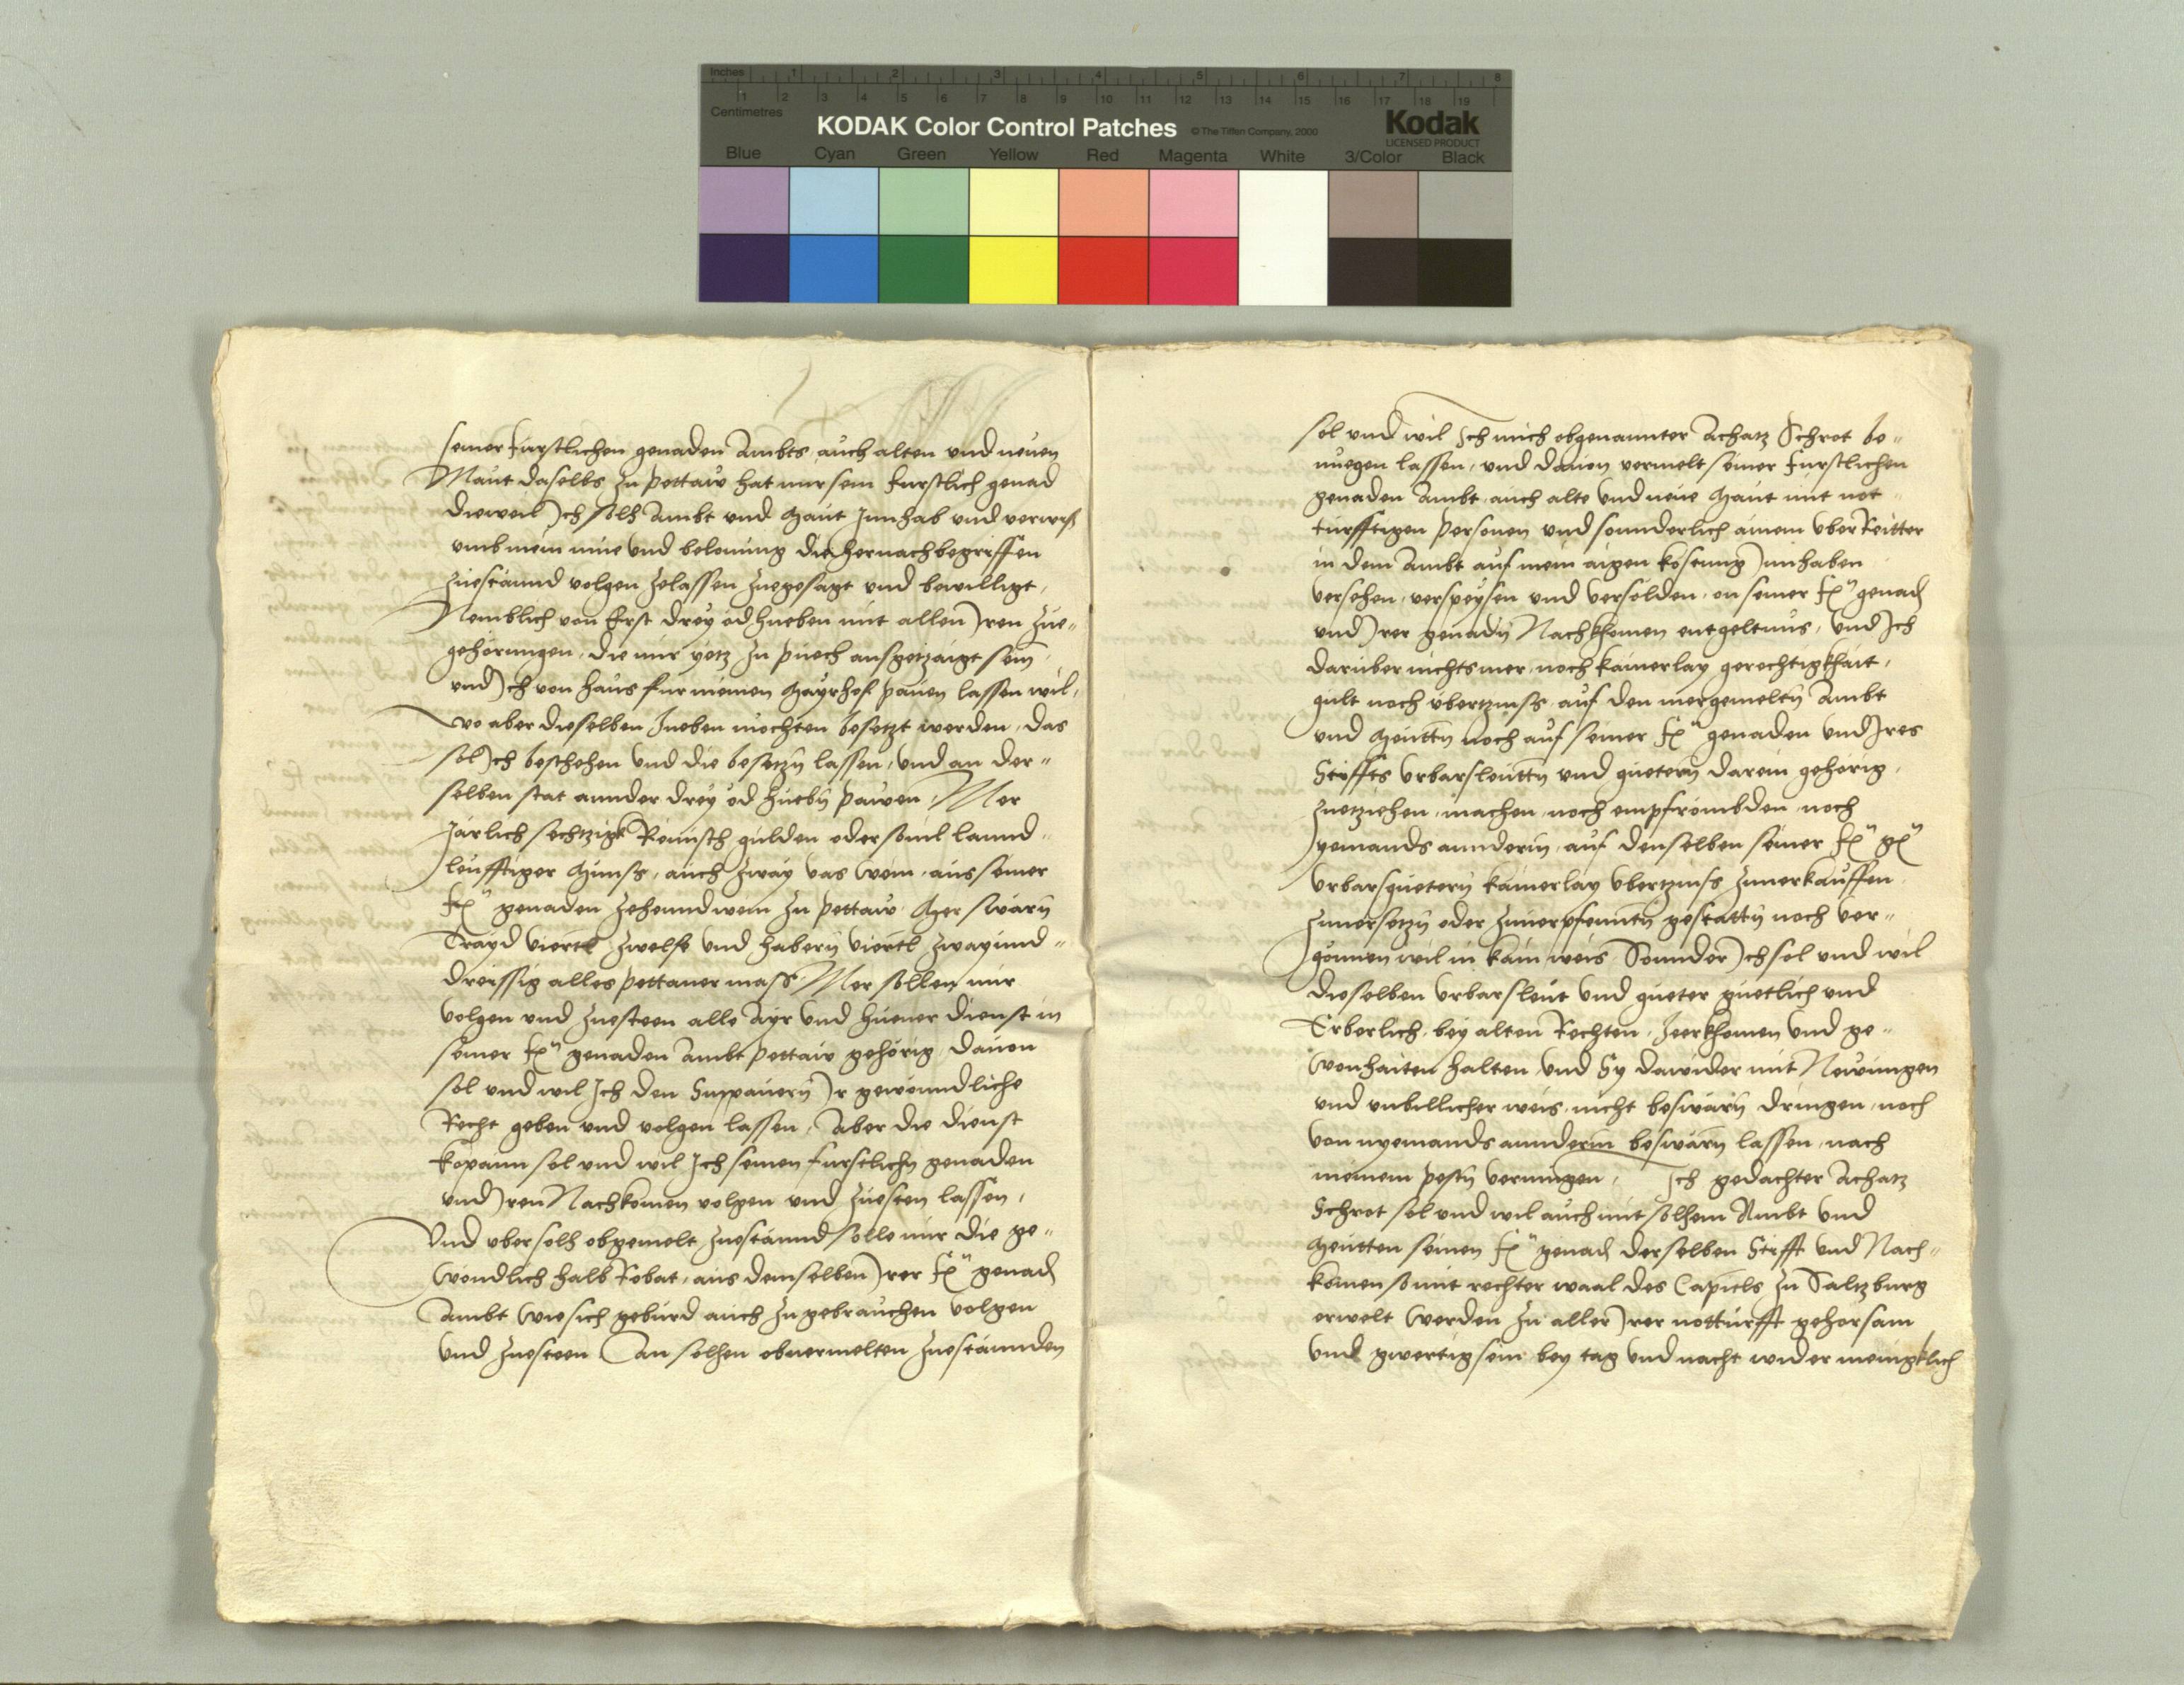 Inches 1 2 3 4 5 6 7 8
Centimetres 1 2 3 4 5 6 7 8 9 10 11 12 13 14 15 16 17 18 19
KODAK Color Control Patches © The Tiffen Company, 2000 Kodak
LICENSED PRODUCT
Blue Cyan Green Yellow Red Magenta White 3/Color Black
seiner furstlichen genaden Ambts auch alten vnd neuen
Maut daselbs zu pettaw hat mir sein furstlich genad
dieweil Ich solh Ambt vnd Maut Innhab vnd verwes
vmb mein mue vnd belonung die hernachbegriffen
zuestännd volgen zelassen zuegesagt vnd bewilligt,
Nemblich von Erst drey öd hueben mit allen Iren zue„
gehörungen, die mir yetz zu puech ausgetzaigt sein,
vnd Ich von haus fur meinen Mayrhof pauen lassen wil,
wo aber dieselben hueben mochten besetzt werden, das
sol Ich beschehen vnd die besetzn lassen, vnd an der„
selben stat annder drey öd huebn pawen, Mer
Järlich sechtzigk Reinisch gulden oder souil lannd„
leufftiger Munss, auch zway vas wein, aus seiner
fn genaden zehenndwein zu pettaw Mer swärn
Trayd viertl zwelfe vnd habern viertl zwayund„
dreissig alles pettauer mass Mer sollen mir
volgen vnd zuesteen alle Ayr vnd huener dienst in
seiner fn genaden Ambt pettaw gehörig, dauon
sol vnd wil Ich den Suppauern Ir gewonndliche
Recht geben vnd volgen lassen, Aber die dienst
kopaun sol vnd wil Ich seinen furstlichn genaden
vnd Iren Nachkomen volgen vnd zuesten lassen,
Vnd vber solh obgemelt zuestännd solle mir die ge„
wondlich halb Robat, aus demselben Irer fn genad
Ambt wie sich geburd auch zu gebrauchen volgen
vnd zuesteen An solhen obuermelten zuestännden
sol vnd wil Ich mich obgenannter Achatz Schrot be„
nuegen lassen, vnd dauon vermelt seiner furstlichen
genaden Ambt, auch alte vnd neue Maut mit not„
turfftigen personen vnd sonnderlich ainem vberReitter
in dem Ambt auf mein aigen kostung Innhaben
versehen, verspeysen vnd versolden, on seiner fn genad
vnd Irer genadn Nachkhomen entgeltnus, vnd Ich
daruber nichtsmer noch kainerlay gerechtigkhait,
gult noch vbertzinss auf den mergemeltn Ambt
vnd Meuttn noch auf seiner fn genaden vnd Ires
Stiffts vrbarsleuttn vnd guetern darein gehörig,
zuetziehen, machen, noch empfrömbden, noch
yemands anndern, auf denselben seiner fn gn
vrbarsguetern kainerlay vbertzinss zuuerkauffen
zuuersetzn oder zuuerpfenntn gestattn noch ver„
gönnen wil in kain weis Sonnder Ich sol vnd wil
dieselben vrbarsleut vnd gueter guetlich vnd
Erberlich, bey alten Rechten, heerkhomen vnd ge„
wonhaiten halten vnd Sy dawider mit Newungen
vnd vnbillicher weis, nicht beswärn dringen, noch
von nyemands annderm beswärn lassen, nach
meinem pestn vermugen, Ich gedachter Achatz
Schrot sol vnd wil auch mit solhem Ambt vnd
Meutten seinen fn genad derselben Stifft vnd Nach„
komen so mit rechter waal des Capitls zu Saltzburg
erwelt werden zu aller Irer notturfft gehorsam
vnd gwertig sein bey tag vnd nacht wider menigklich